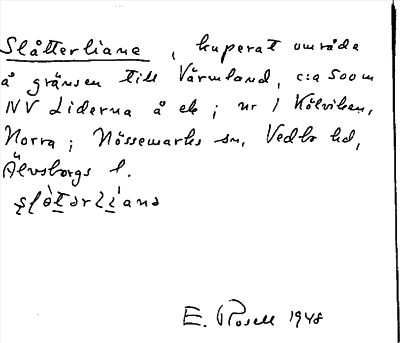 Slåtterliane, kuperat område
å gränsen till Värmland, c:a 500 m
NV Liderna å ek; nr 1 Kölviken,
Norra; Nössemarks sn, Vedbo hd,
Älvsborgs l.
E. Rosell 1948